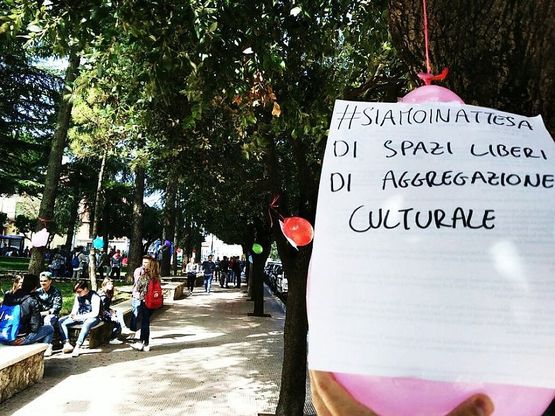 #SIAMOINATTESA
DI SPAZI LIBERI
DI AGGREGAZIONE
CULTURALE